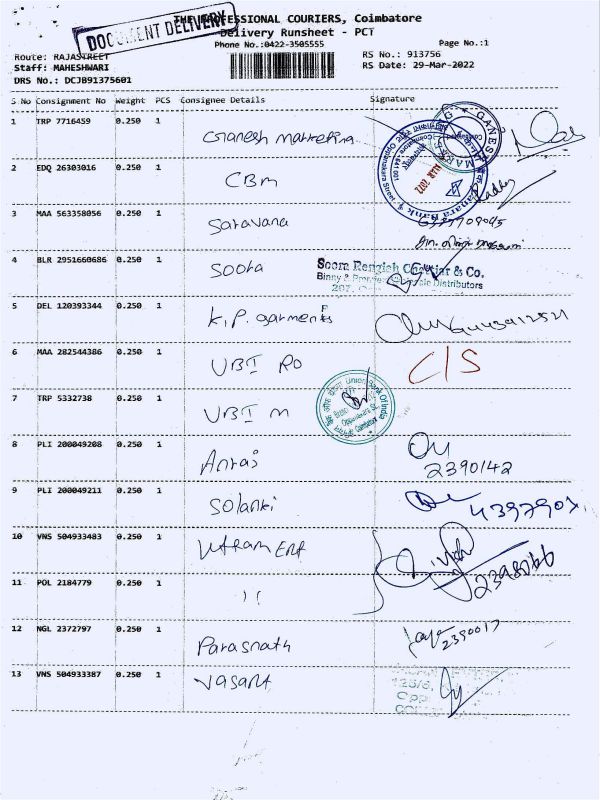 DOCUMENT DELIVERY
THE PROFESSIONAL COURIERS, Coimbatore
Delivery Runsheet - PCT
Phone No.:0422-3505555
Page No.:1
Route: RAJASTREET
RS No.: 913756
Staff: MAHESHWARI
RS Date: 29-Mar-2022
DRS No.: DCJ891375601
S No Consignment No Weight PCS Consignee Details Signature
1 TRP 7716459 0.250 1 Ganesh marketing
2 EDQ 26303016 0.250 1 CBM
3 MAA 563358056 0.250 1 Saravana
4 BLR 2951660686 0.250 1 Soora
Soora Rengiah & Co.
Binny & Distributors
5 DEL 120393344 0.250 1 K.P. garments
6 MAA 282544386 0.250 1 UBI RO C/S
7 TRP 5332738 0.250 1 UBI M
Union Bank Of India
8 PLI 200049208 0.250 1 2390142
9 PLI 200049211 0.250 1 Solanki
10 VNS 504933483 0.250 1 Uttam Ent
11 POL 2184779 0.250 1 ''
12 NGL 2372797 0.250 1 Parasnath 2390017
13 VNS 504933387 0.250 1 Vasant